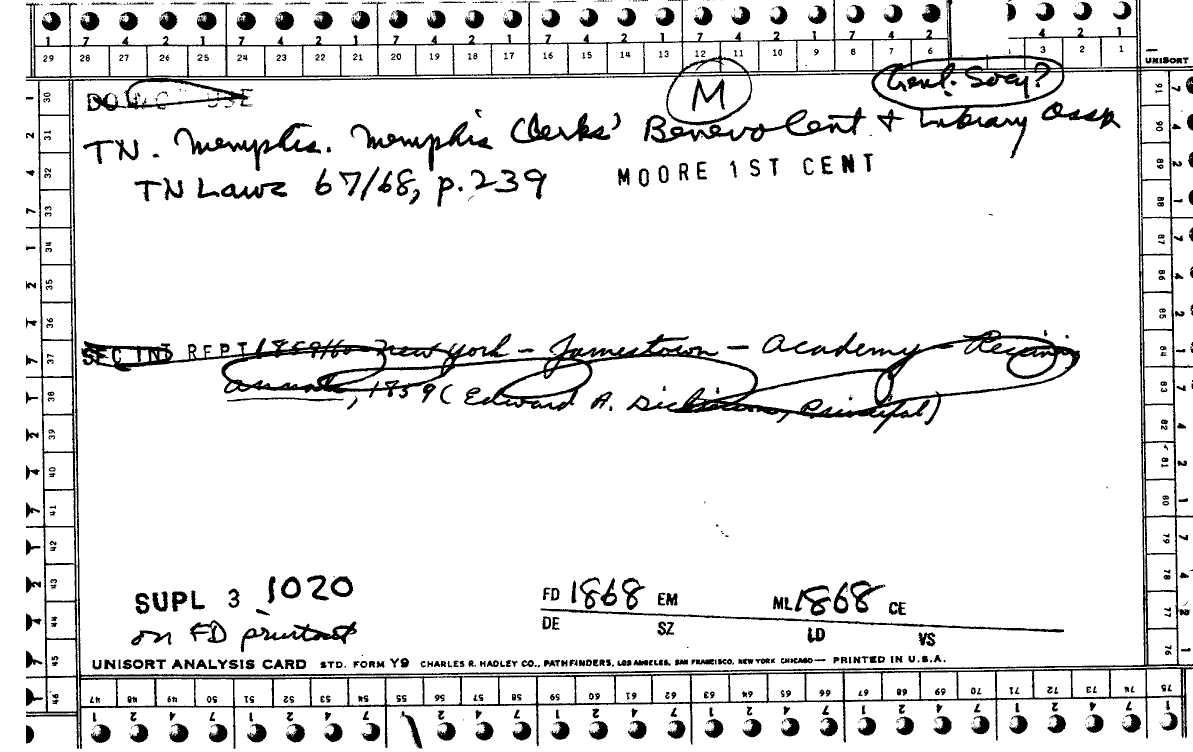 1 7 4 2 1 7 4 2 1 7 4 2 1 7 4 2 1 7 4 2 1 7 4 2 4 2 1
29 28 27 26 25 24 23 22 21 20 19 18 17 16 15 14 13 12 11 10 9 8 7 6 3 2 1
UNISORT
M
Genl. Socy?
TN. Memphis. Memphis Clerks' Benevolent + Library Assn
TN Laws 67/68, p.239 MOORE 1ST CENT
SEC IND REPT 1859/60 New York - Jamestown - Academy - Receiving
Annals, 1859 (Edward A. Dickinson, Principal)
SUPL 3 1020
on FD printout
FD 1868 EM ML 1868 CE
DE SZ LD VS
UNISORT ANALYSIS CARD STD. FORM Y9 CHARLES R. HADLEY CO., PATHFINDERS, LOS ANGELES, SAN FRANCISCO, NEW YORK CHICAGO — PRINTED IN U.S.A.
47 48 49 50 51 52 53 54 55 56 57 58 59 60 61 62 63 64 65 66 67 68 69 70 71 72 73 74 75
30 31 32 33 34 35 36 37 38 39 40 41 42 43 44 45 46
91 90 89 88 87 86 85 84 83 82 81 80 79 78 77 76